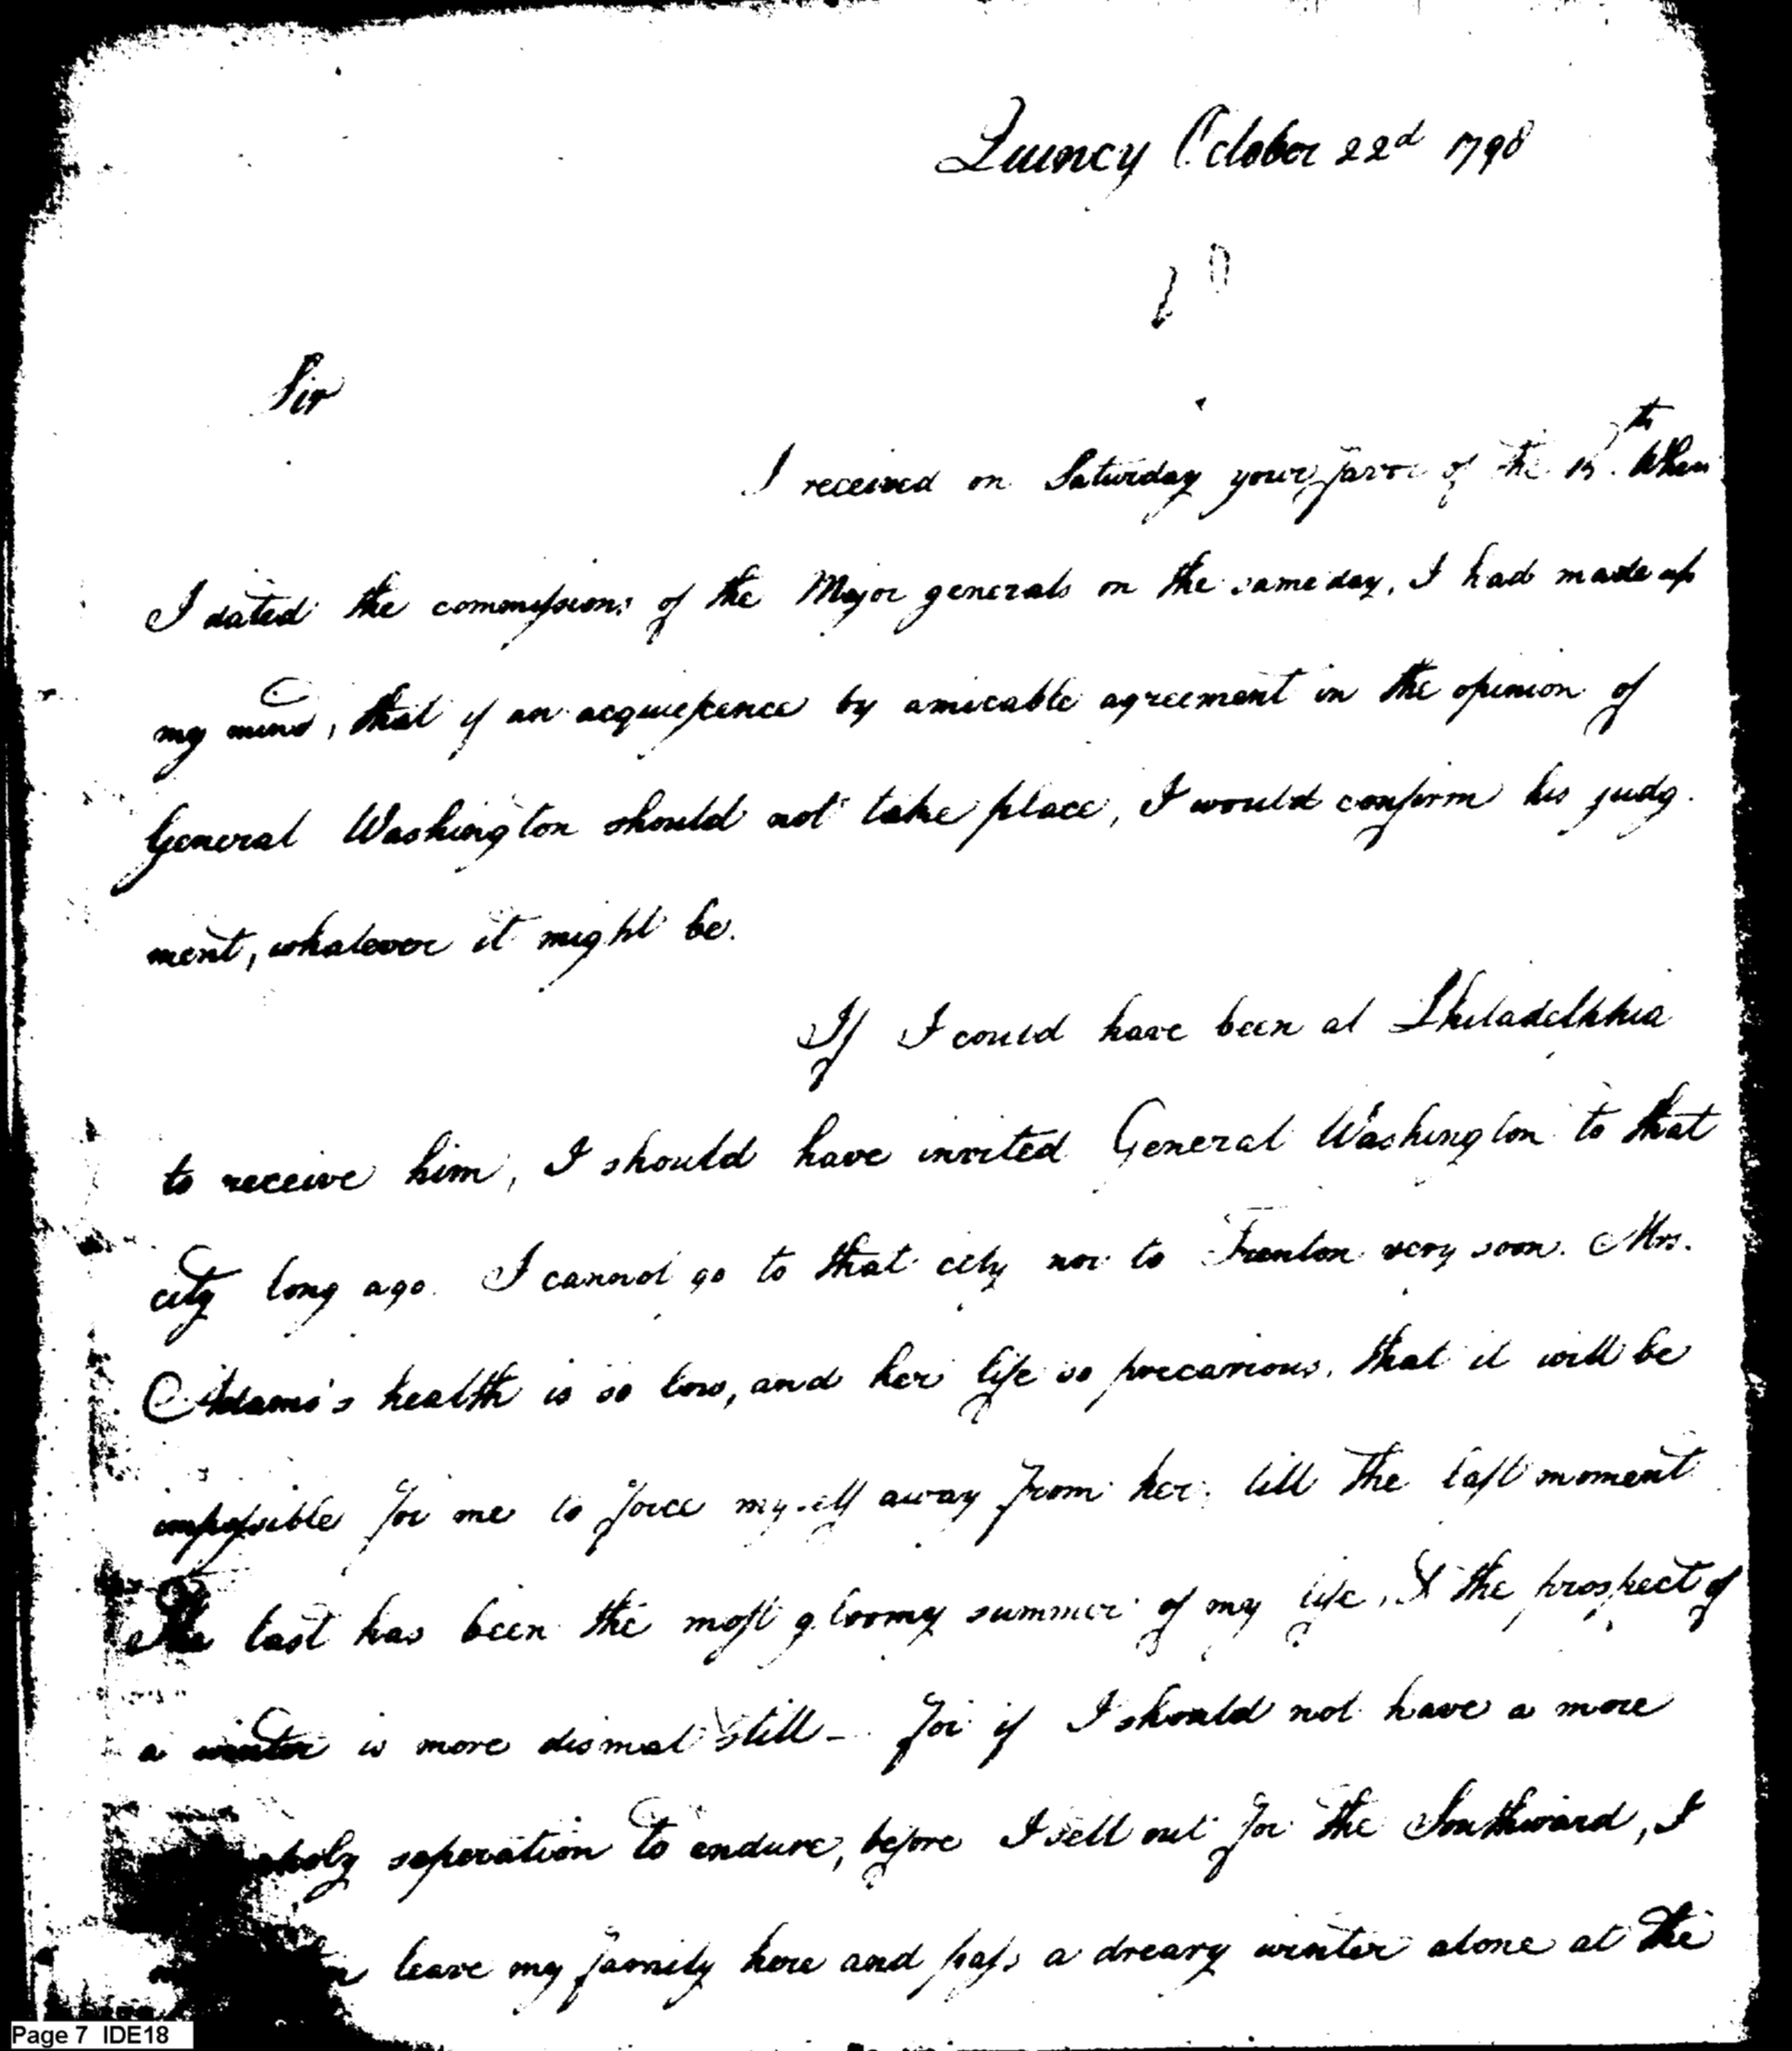 Quincy October 22d 1798
Sir
I received on Saturday your favor of the When
I dated the commissions of the Major generals on the same day, I had made up
my mind, that if an acquiescence by amicable agreement in the opinion of
General Washington should not take place, I would confirm his judg
ment, whatever it might be.
If I could have been at Philadelphia
to receive him, I should have invited General Washington to that
city long ago. I cannot go to that city nor to Trenton very soon. Mrs.
Adams's health is so low, and her life so precarious, that it will be
impossible for me to force myself away from her, till the last moment
The last has been the most gloomy summer of my life, & the prospect of
a winter is more dismal still – For if I should not have a more
seperation to endure, before I sett out for the Southward, I
leave my family here and pass a dreary winter alone at the
Page 7 IDE18